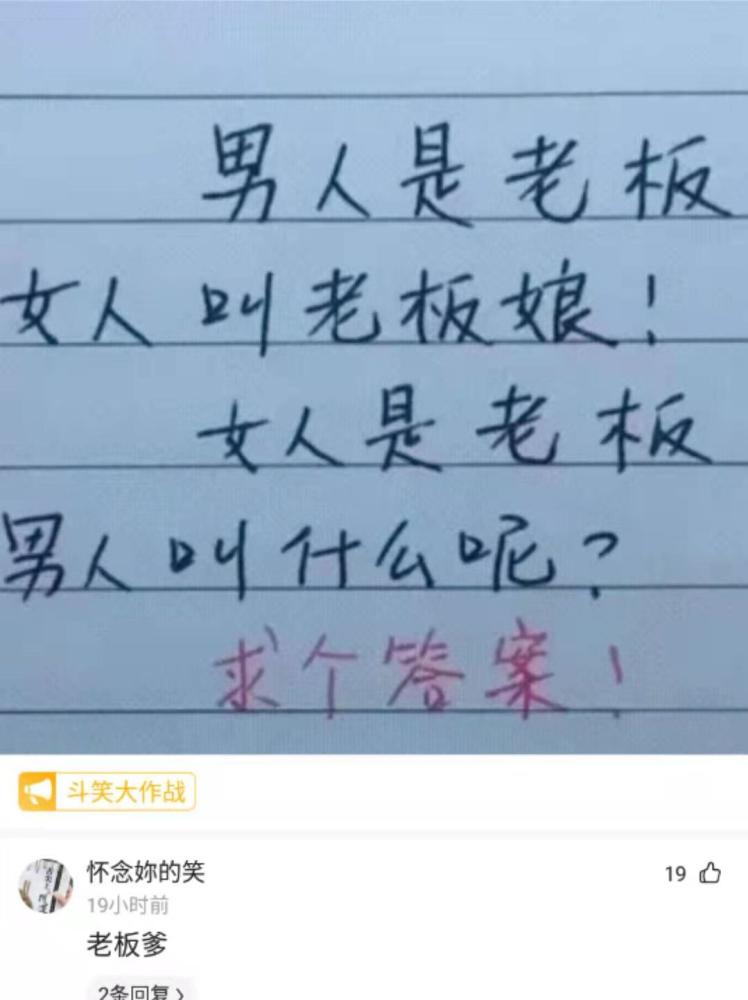 男人是老板
女人叫老板娘！
女人是老板
男人叫什么呢？
求个答案！
斗笑大作战
怀念妳的笑
19
19小时前
老板爹
2条回复 >